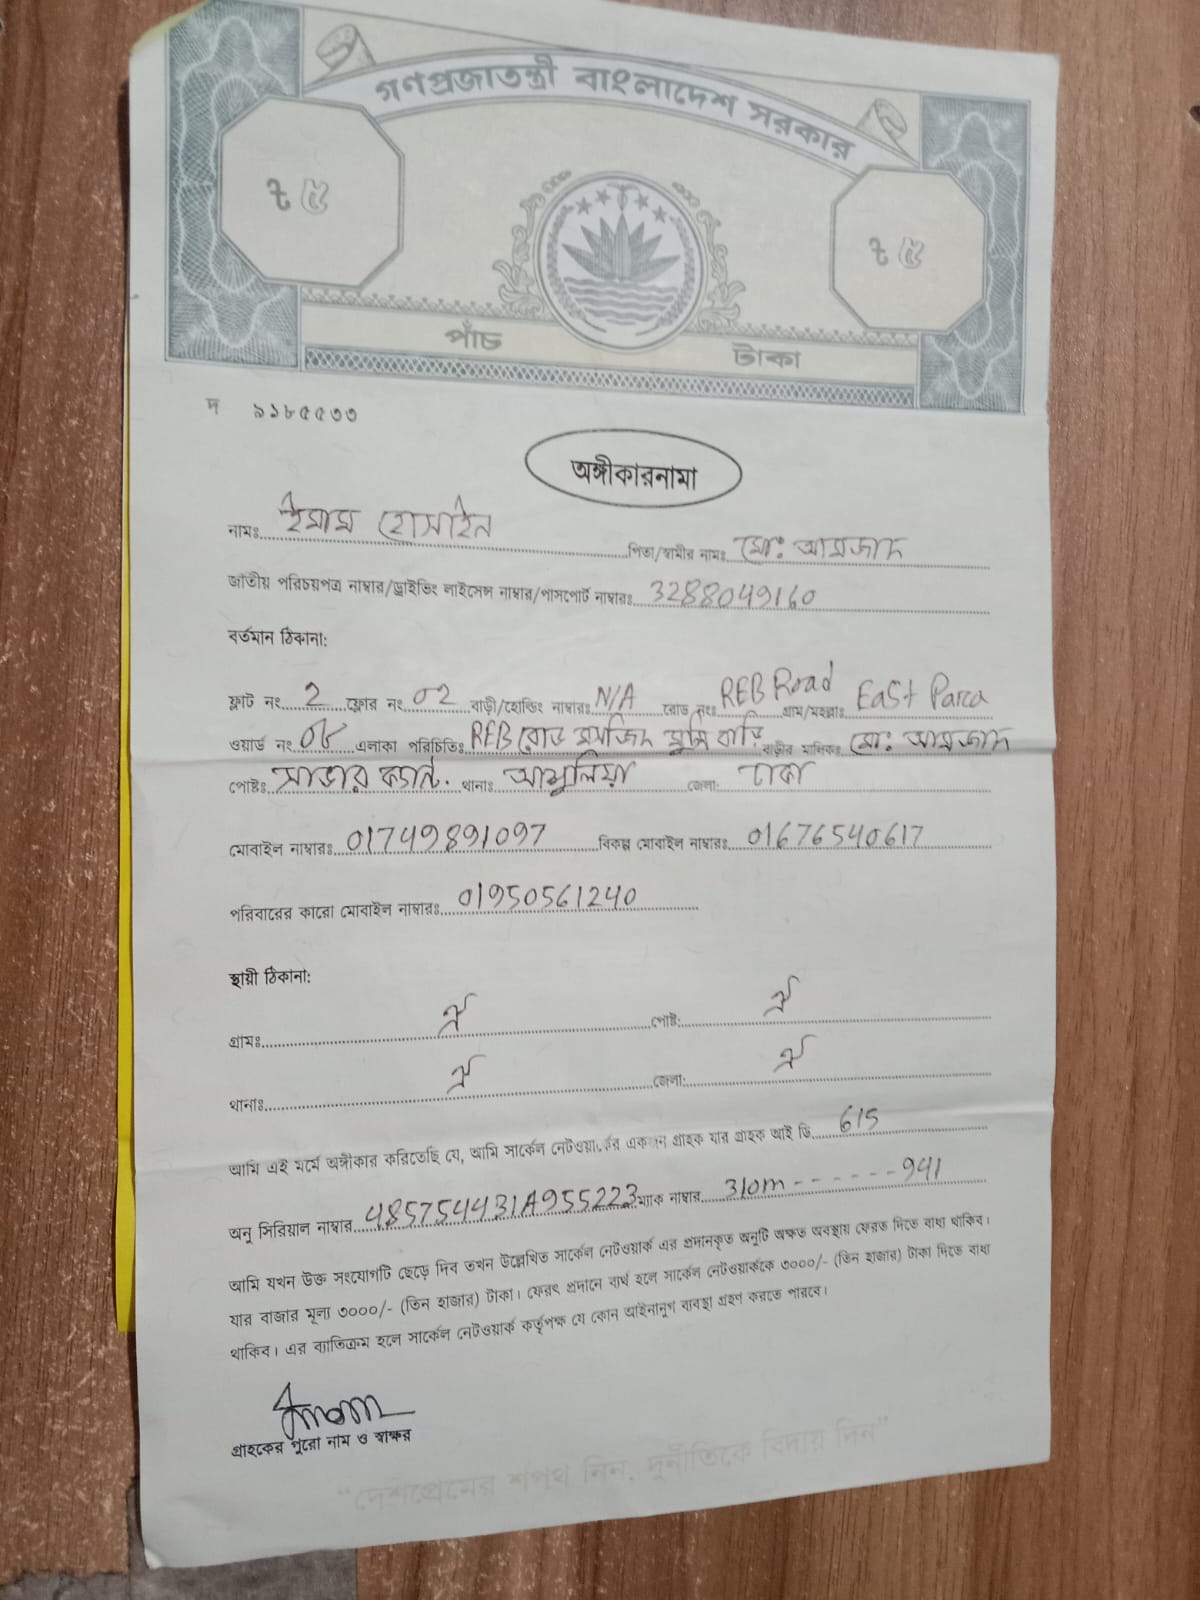 গণপ্রজাতন্ত্রী বাংলাদেশ সরকার
৳ ৫
৳ ৫
পাঁচ টাকা
দ ৯১৮৫৫৩৩
অঙ্গীকারনামা
নামঃ ইমাম হোসাইন পিতা/স্বামীর নামঃ মোঃ আমজাদ
জাতীয় পরিচয়পত্র নাম্বার/ড্রাইভিং লাইসেন্স নাম্বার/পাসপোর্ট নাম্বারঃ 3288049160
বর্তমান ঠিকানা:
ফ্লাট নং 2 ফ্লোর নং 02 বাড়ী/হোল্ডিং নাম্বারঃ N/A রোড নংঃ REB Road গ্রাম/মহল্লাঃ East Parca
ওয়ার্ড নং 08 এলাকা পরিচিতিঃ REB রোড মসজিদ সুমি বাড়ি বাড়ীর মালিকঃ মোঃ আমজাদ
পোষ্টঃ সাভার ক্যান্ট. থানাঃ আশুলিয়া জেলা: ঢাকা
মোবাইল নাম্বারঃ 01749891097 বিকল্প মোবাইল নাম্বারঃ 01676540617
পরিবারের কারো মোবাইল নাম্বারঃ 01950561240
স্থায়ী ঠিকানা:
গ্রামঃ ঐ পোষ্ট: ঐ
থানাঃ ঐ জেলা: ঐ
আমি এই মর্মে অঙ্গীকার করিতেছি যে, আমি সার্কেল নেটওয়ার্কের একজন গ্রাহক যার গ্রাহক আই ডি 615
অনু সিরিয়াল নাম্বার 485754431A955223 ম্যাক নাম্বার 310m ------941
আমি যখন উক্ত সংযোগটি ছেড়ে দিব তখন উল্লেখিত সার্কেল নেটওয়ার্ক এর প্রদানকৃত অনুটি অক্ষত অবস্থায় ফেরত দিতে বাধ্য থাকিব।
যার বাজার মূল্য ৩০০০/- (তিন হাজার) টাকা। ফেরৎ প্রদানে ব্যর্থ হলে সার্কেল নেটওয়ার্ককে ৩০০০/- (তিন হাজার) টাকা দিতে বাধ্য
থাকিব। এর ব্যতিক্রম হলে সার্কেল নেটওয়ার্ক কর্তৃপক্ষ যে কোন আইনানুগ ব্যবস্থা গ্রহণ করতে পারবে।
Imam
গ্রাহকের পুরো নাম ও স্বাক্ষর
“দেশপ্রেমের শপথ নিন, দুর্নীতিকে বিদায় দিন”